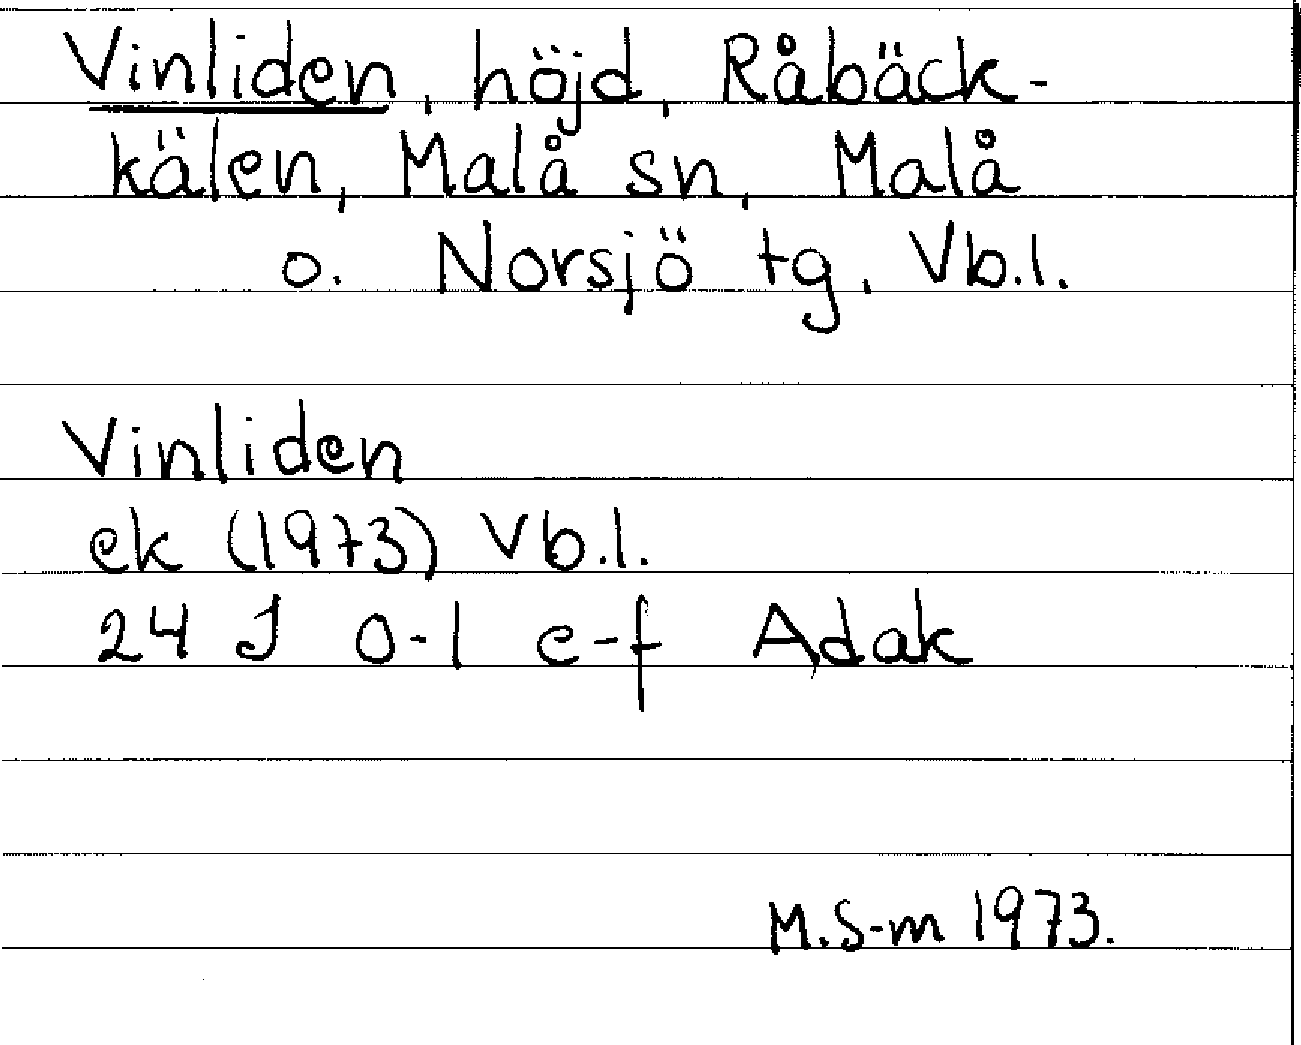 Vinliden, höjd, Råbäck-
kälen, Malå sn, Malå
o. Norsjö tg, Vb.l.
Vinliden
ek (1973) Vb.l.
24 J 0-1 e-f Adak
M.S-m 1973.